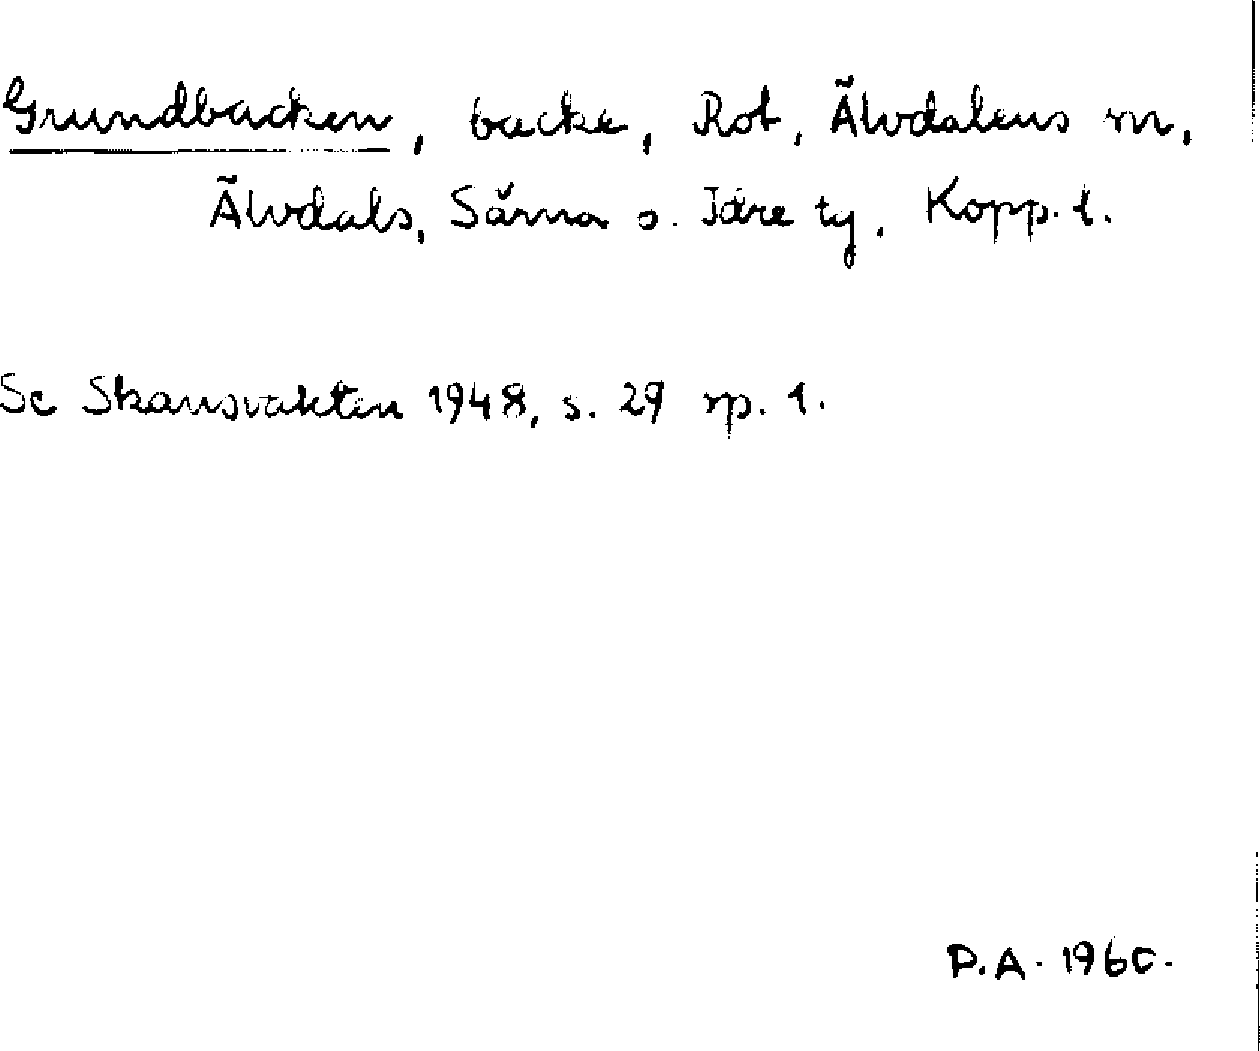 Grundbacken, backe, Rot, Älvdalens sn,
Älvdals, Särna o. Idre tg, Kopp. l.
Se Skansvakten 1948, s. 29 sp. 1.
P.A. 1960.